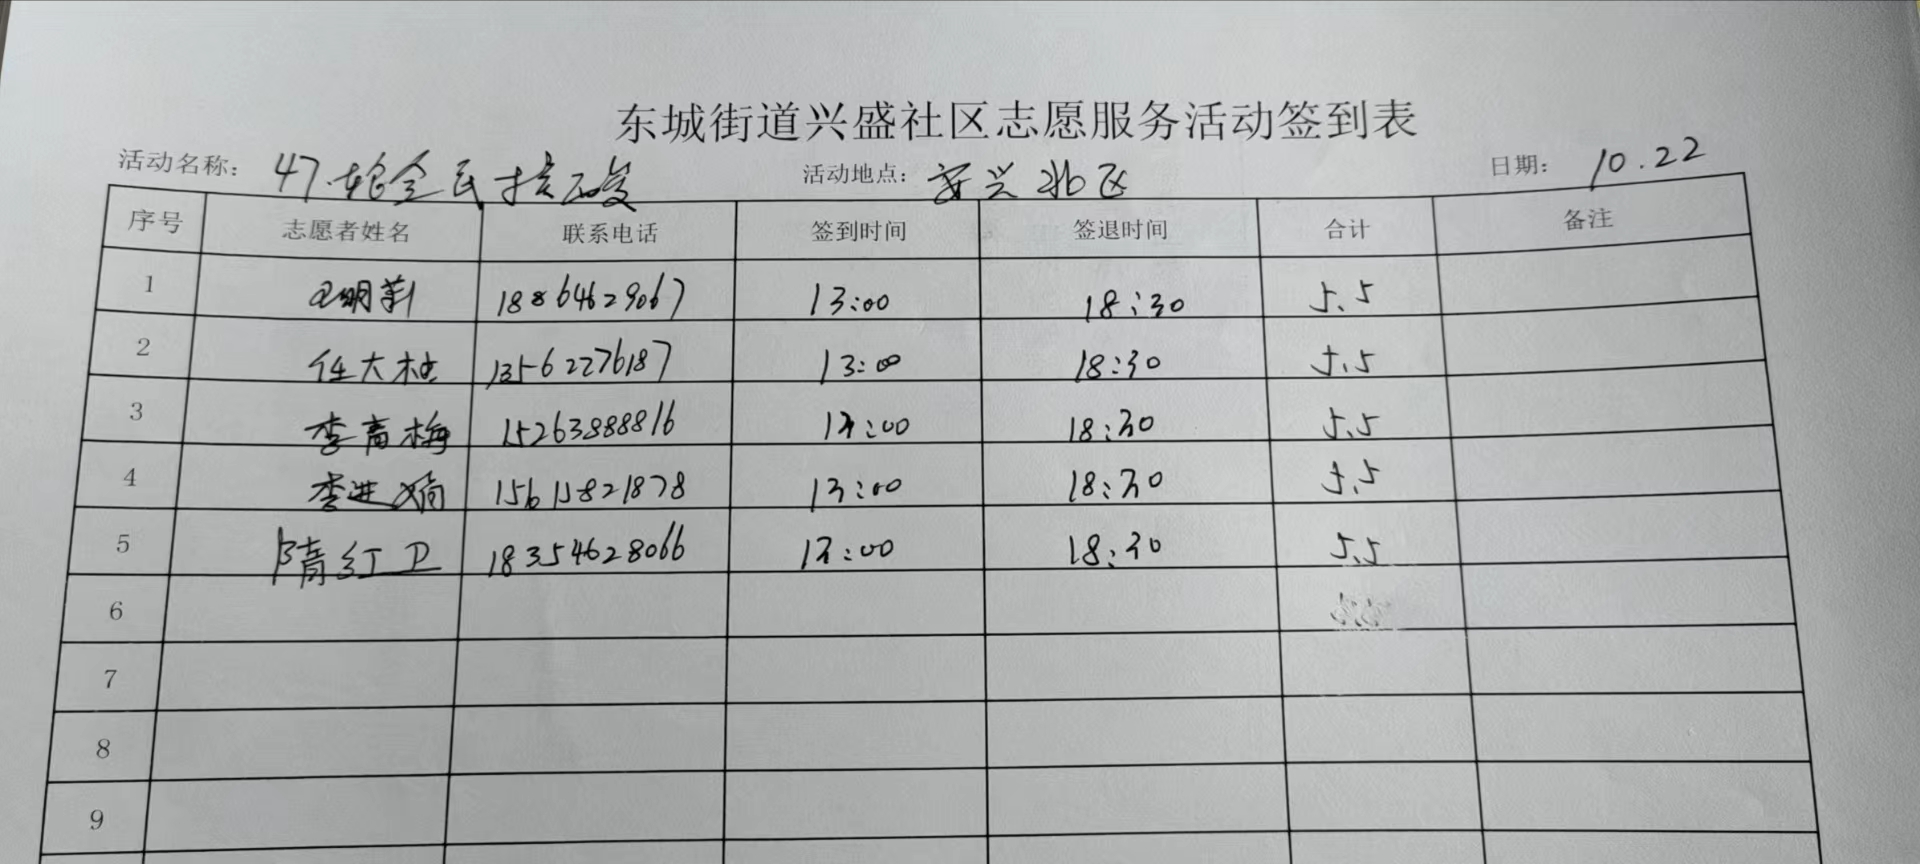 东城街道兴盛社区志愿服务活动签到表
活动名称: 47轮全民核酸 活动地点: 安兴北区 日期: 10.22
序号 志愿者姓名 联系电话 签到时间 签退时间 合计 备注
1 18864629067 13:00 18:30 5.5
2 任大柱 13562276187 13:00 18:30 5.5
3 李高梅 15263888816 13:00 18:30 5.5
4 李进娟 15615821878 13:00 18:30 5.5
5 隋红卫 18354628066 13:00 18:30 5.5
6
7
8
9